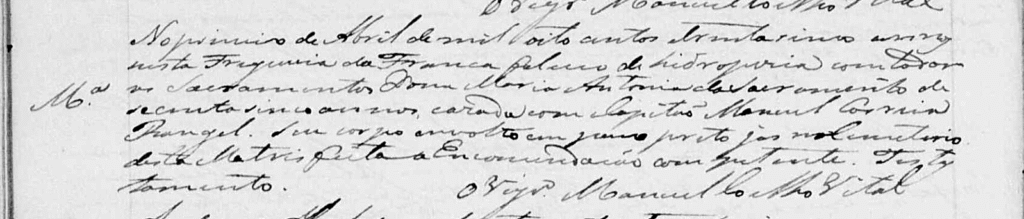 O Vigrº Manuel Coelho Vital
No primeiro de Abril de mil oito centos e trinta e sinco annos
nesta Freguezia da Franca faleceo de hidropezia com todos
Mª
os Sacramentos Dona Maria Antonia do Sacramento de
secenta sinco annos, cazada com Capitão Manuel Correia
Rangel. Seu corpo envolto em pano preto jas no Cemiterio
desta Matris feita a Encomendação competente. Test
tamento.
O Vigrº Manuel Coelho Vital